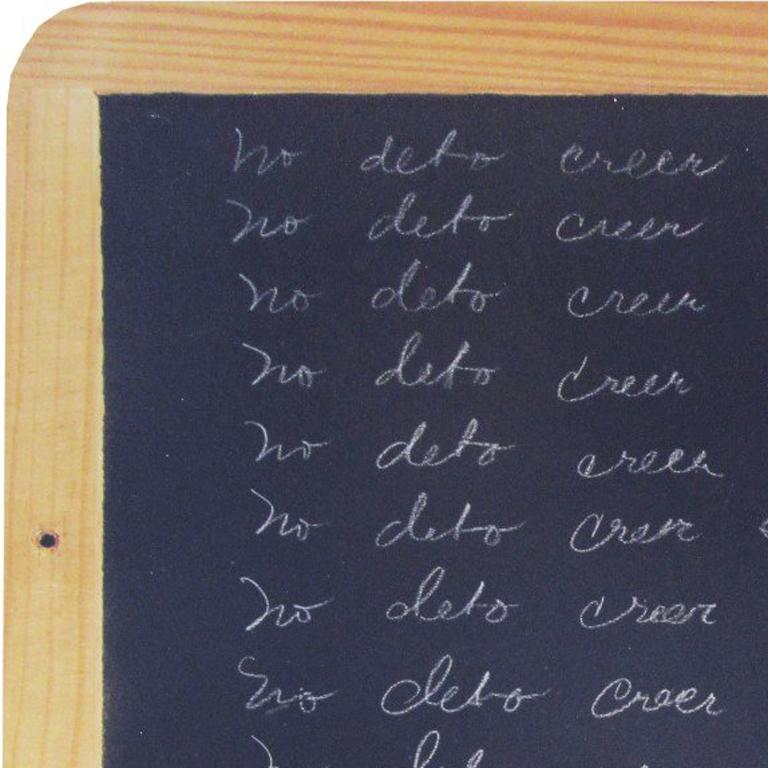 no debo creer
no debo creer
no debo creer
no debo creer
no debo creer
no debo creer
no debo creer
no debo creer